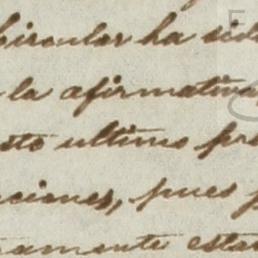 Circular ha sido
la afirmativa
esto ultimo pre
aciones, pues
ramente esta